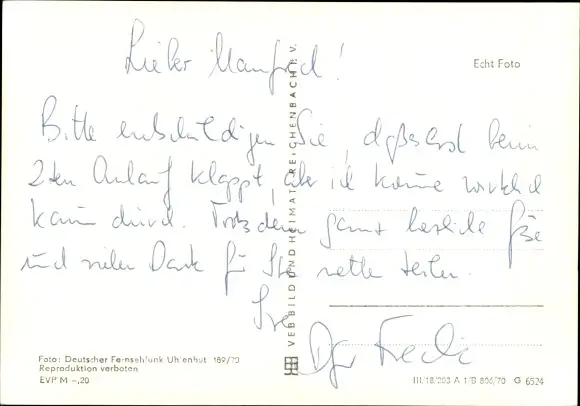 Lieber Manfred!
Echt Foto
Bitte entschuldigen Sie, daß es erst beim
2ten Anlauf klappt, aber ich komme wirklich
kaum durch. Trotzdem ganz herzliche Grüße
und vielen Dank für Ihre netten Zeilen.
Ihre
VEB BILD UND HEIMAT REICHENBACH I. V.
Foto: Deutscher Fernsehfunk Uhlenhut 189/70
Reproduktion verboten
EVP M -,20
III/18/203 A 1/B 806/70 G 6524